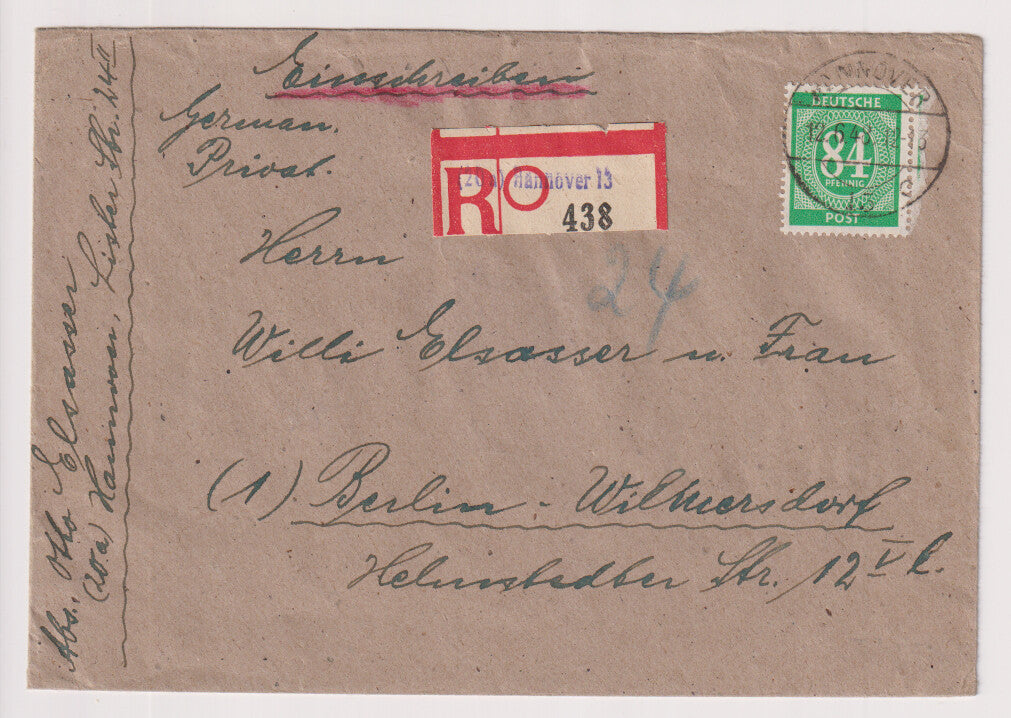 Einschreiben
German.
Privat.
(20a) Hannover 13
R
438
HANNOVER
12.6.46
DEUTSCHE
84
PFENNIG
POST
Herrn
24
Willi Elsasser u. Frau
(1) Berlin-Wilmersdorf
Helmstedter Str. 12 V l.
Abs.: Otto Elsasser
(20a) Hannover, Lister Str. 24 II